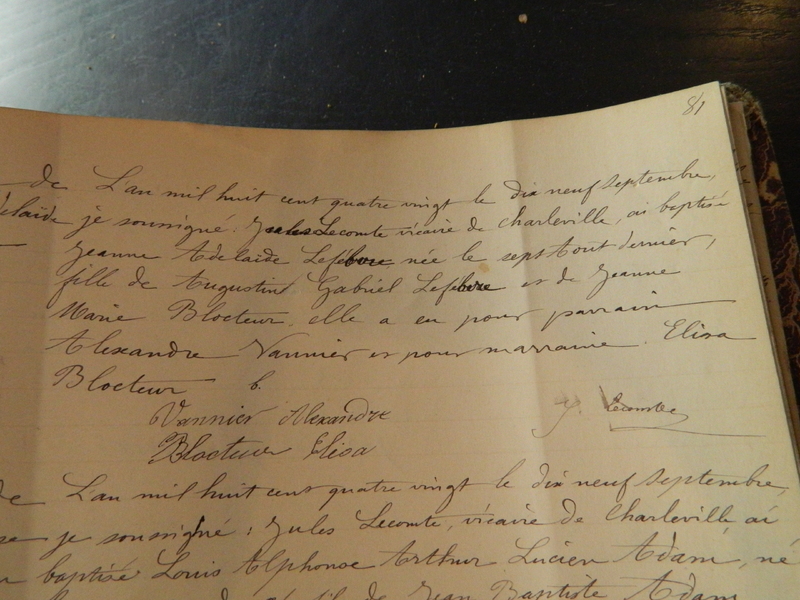 81
de L'an mil huit cent quatre vingt le dix neuf septembre,
je soussigné Jules Lecomte vicaire de Charleville, ai baptisé
Jeanne Adelaïde Lefébvre née le sept Aout dernier,
fille de Augustin Gabriel Lefébvre et de Jeanne
Marie Blocteur, elle a eu pour parrain
Alexandre Vannier et pour marraine Elisa
Blocteur
Vannier Alexandre J. Lecomte
Blocteur Elisa
L'an mil huit cent quatre vingt le dix neuf septembre,
je soussigné, Jules Lecomte, vicaire de Charleville, ai
baptisé Louis Alphonse Arthur Lucien Adam, né
fil de Jean Baptiste Adam